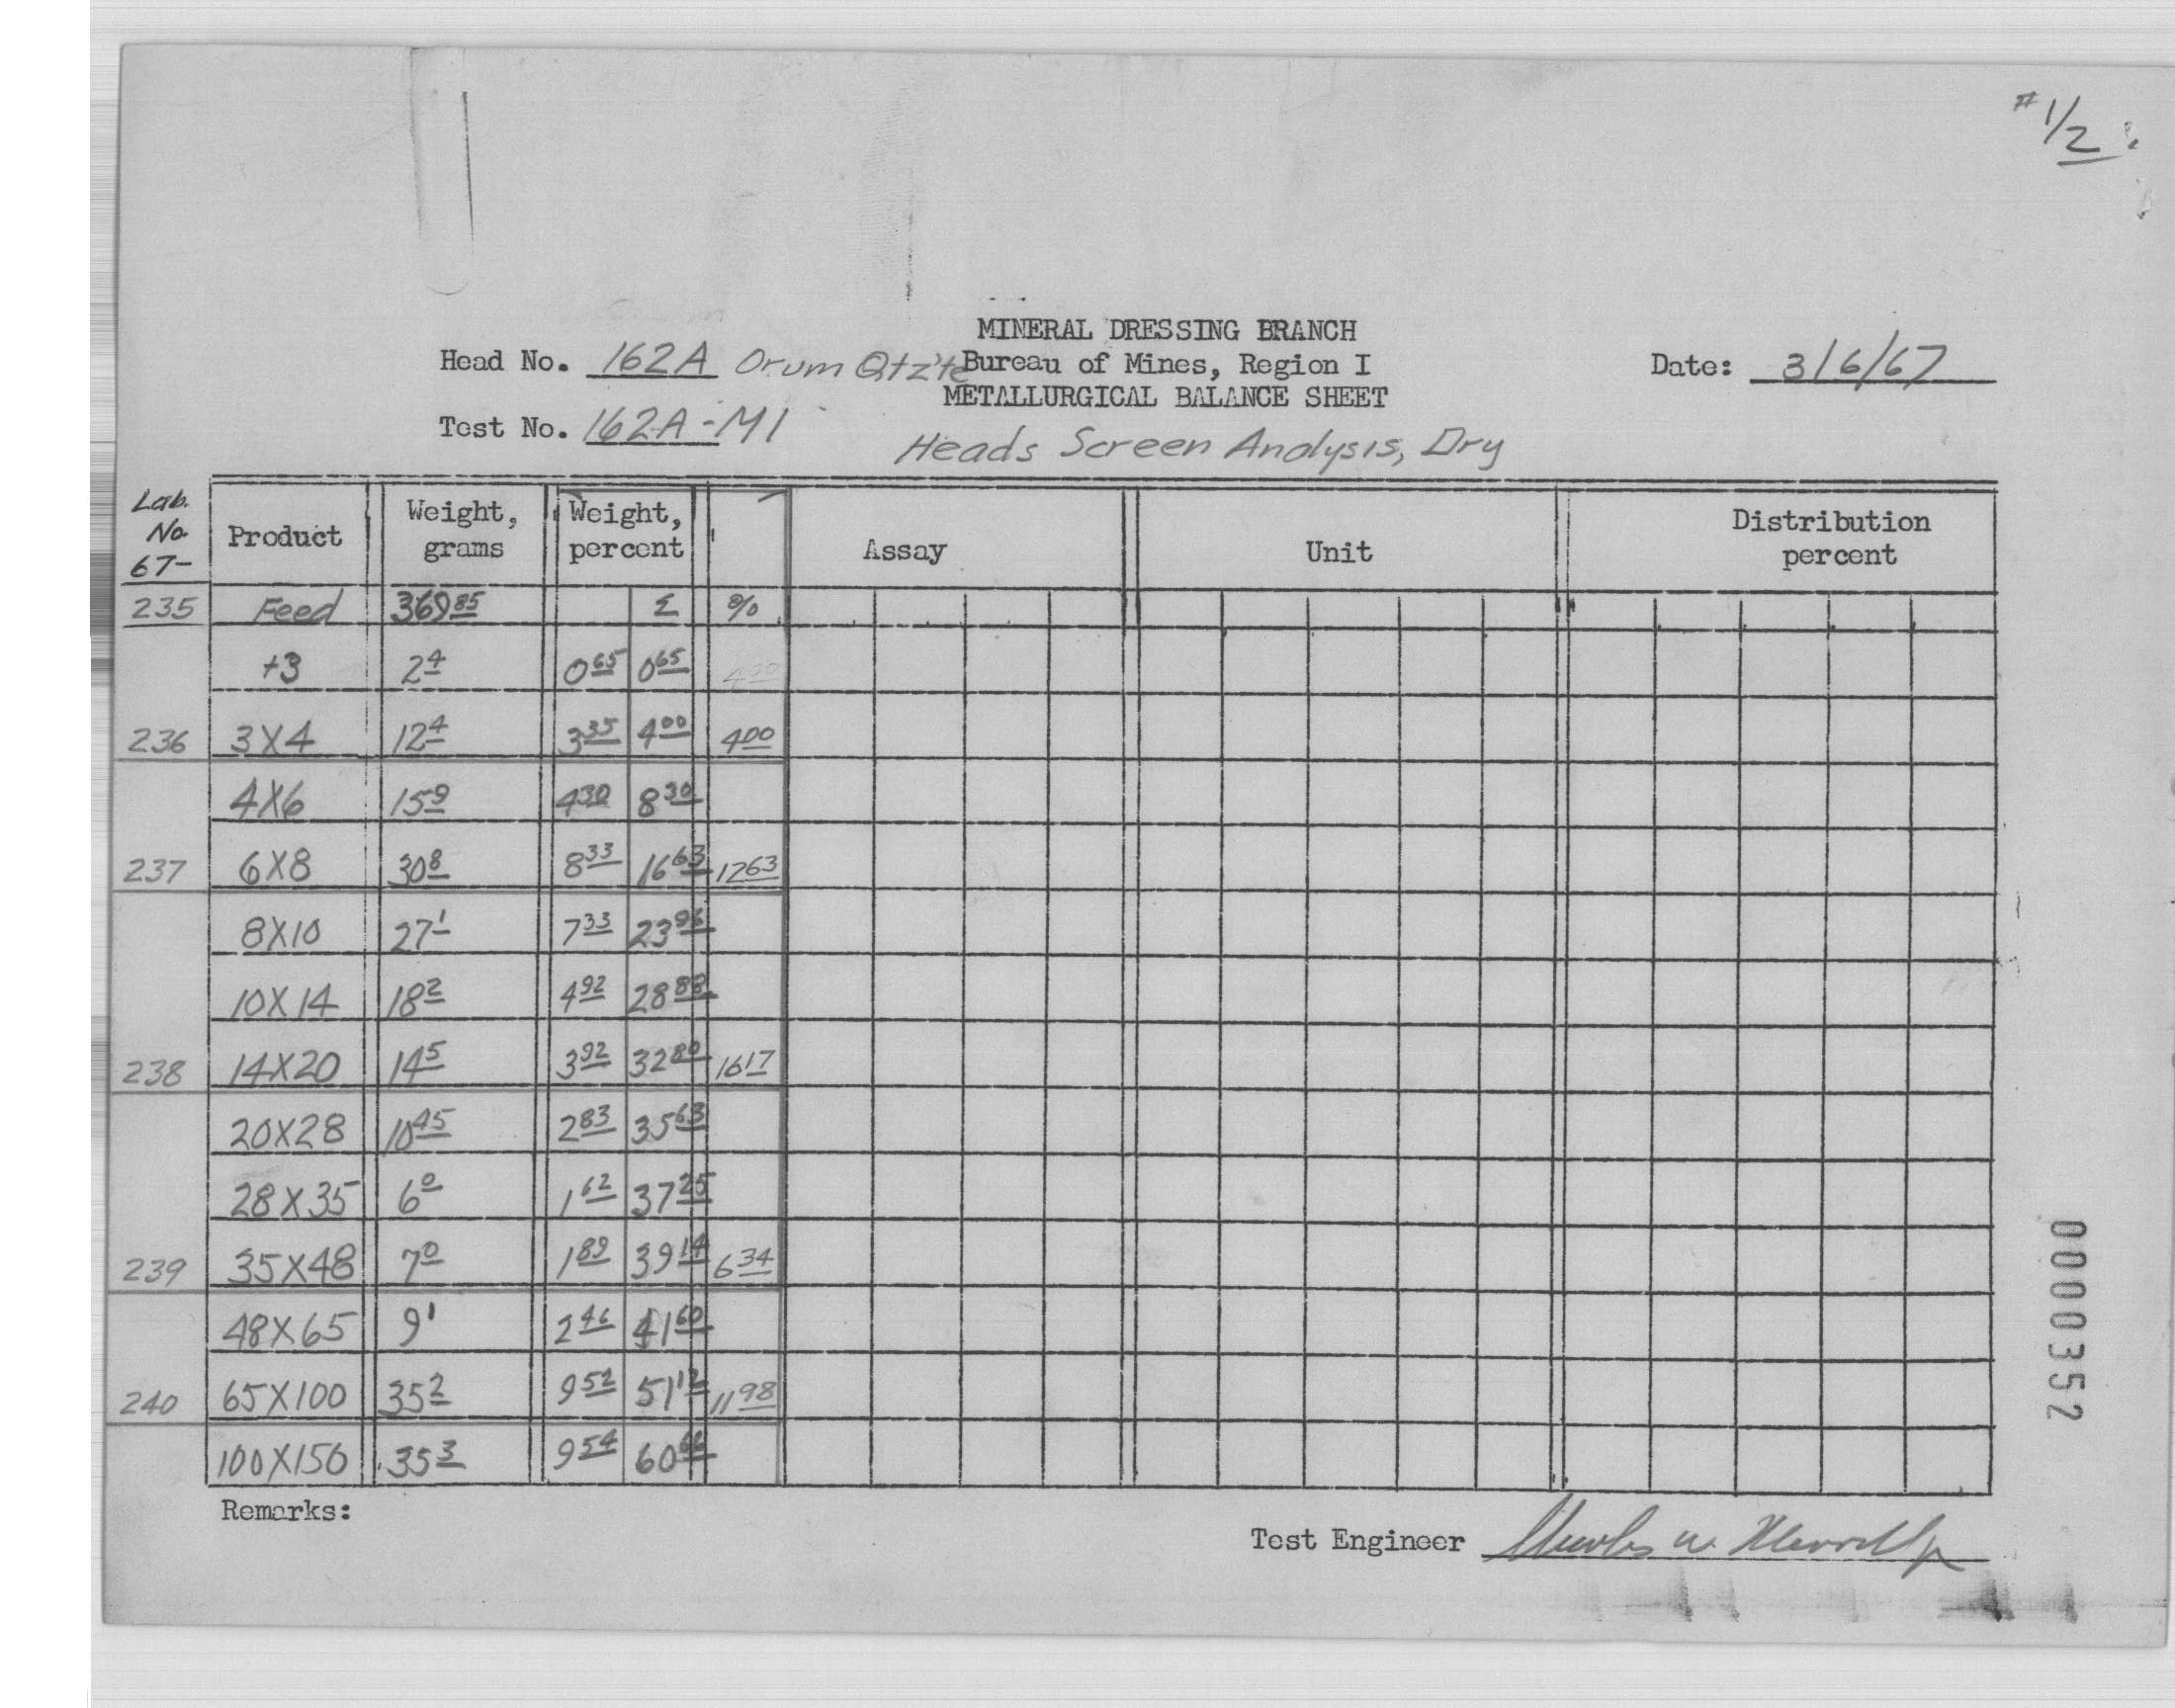 # 1/2
MINERAL DRESSING BRANCH
Head No. 162A Orum Qtz'te Bureau of Mines, Region I Date: 3/6/67
METALLURGICAL BALANCE SHEET
Test No. 162A-M1 Heads Screen Analysis, Dry
Lab. No 67- Product Weight, grams Weight, percent Assay Unit Distribution percent
235 Feed 369.85 Σ %
+3 2.4 0.65 0.65 4.00
236 3X4 12.4 3.35 4.00 4.00
4X6 15.9 4.30 8.30
237 6X8 30.8 8.33 16.63 12.63
8X10 27.1 7.33 23.96
10X14 18.2 4.92 28.88
238 14X20 14.5 3.92 32.80 16.17
20X28 10.45 2.83 35.63
28X35 6.0 1.62 37.25
239 35X48 7.0 1.89 39.14 6.34
48X65 9.1 2.46 41.60
240 65X100 35.2 9.52 51.12 11.98
100X150 35.3 9.54 60.66
Remarks:
Test Engineer Charles W. Merrill Jr
0000352